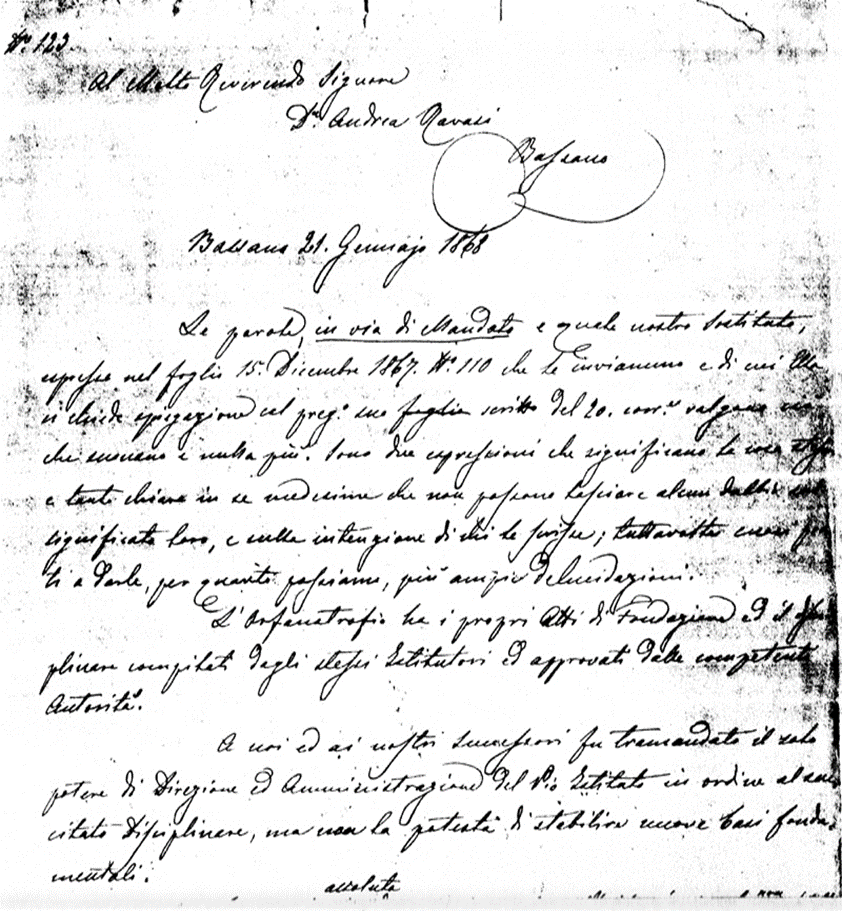 N.º 123
Al Molto Reverendo Signore
D.n Andrea Ravasi
Bassano
Bassano 21. Gennajo 1868
Le parole, in via di Mandato e quale nostro sostituto,
espresse nel foglio 15. Dicembre 1867. N.º 110 che le inviammo e di cui Ella
ci chiede spiegazione col preg.º suo foglio scritto del 20. corr.e valgono
che suonano e nulla più. Sono due espressioni che significano la cosa stessa
e tanto chiare in se medesime che non possono lasciare alcun dubbio sul
significato loro, e sulla intenzione di chi le scrisse; tuttavolta
ti a darle, per quanto possiamo, più ampie delucidazioni.
L'Orfanatrofio ha i propri Atti di Fondazione ed il Disci-
plinare compilati dagli stessi Istitutori ed approvati dalle competenti
Autorità.
A noi ed ai nostri successori fu tramandato il solo
potere di Direzione ed Amministrazione del Pio Istituto in ordine al suc-
citato Disciplinare, ma non la potestà di stabilire nuove basi fonda-
mentali.
assoluta